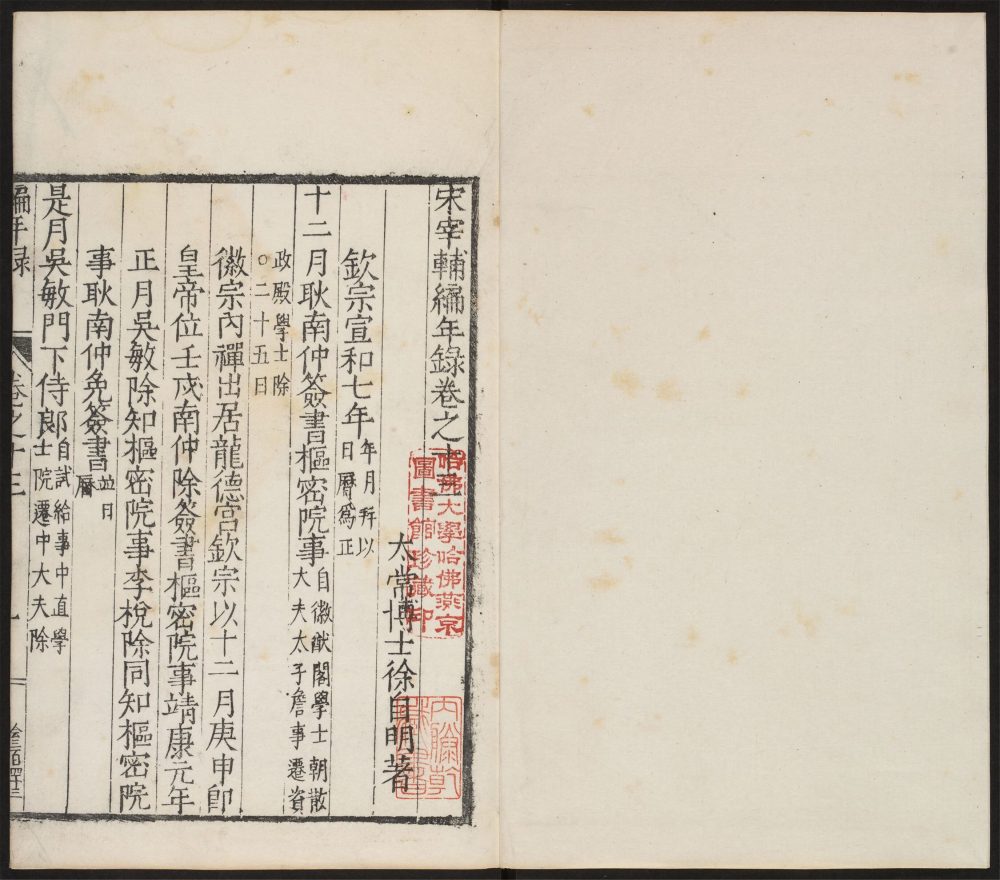 宋宰輔編年錄卷之十三
太常博士徐自明著
欽宗宣和七年年月拜以日曆爲正
十二月耿南仲簽書樞密院事自徽猷閣學士朝散大夫太子詹事遷資
政殿學士除○二十五日
徽宗內禪出居龍德宮欽宗以十二月庚申卽
皇帝位壬戌南仲除簽書樞密院事靖康元年
正月吳敏除知樞密院事李梲除同知樞密院
事耿南仲免簽書並日曆
是月吳敏門下侍郞自試給事中直學士院遷中大夫除
編年錄 卷之十三 一
哈佛大學哈佛燕京
圖書館珍藏印